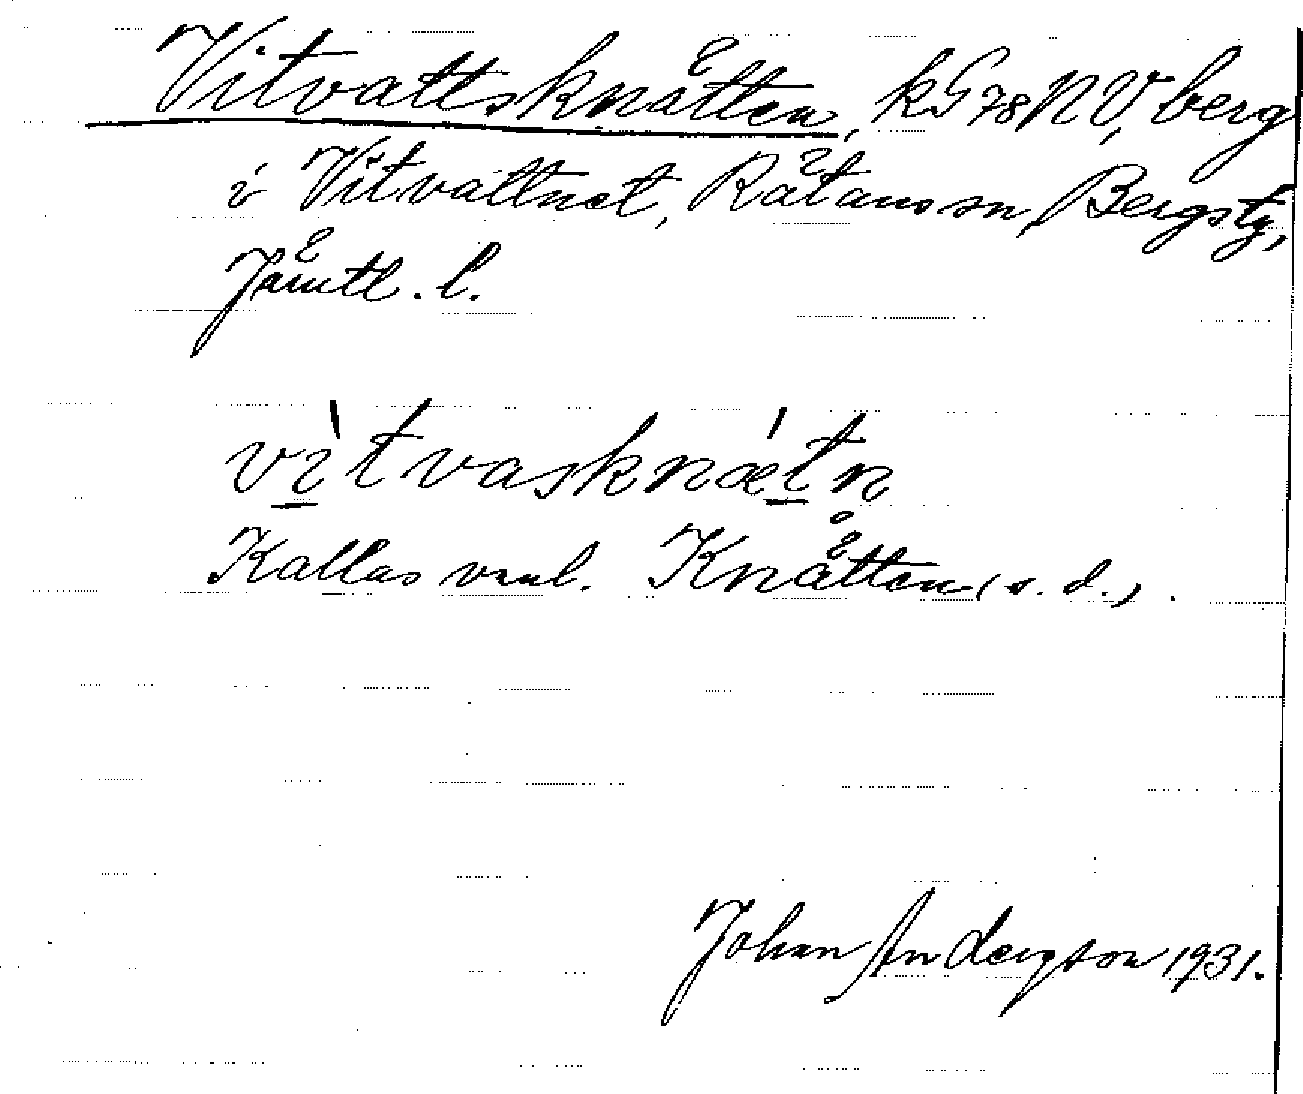 Vitvattsknätten, kG78NV, berg
i Vitvattnet, Rätans sn, Bergs tg,
Jämtl. l.
vìtvasknǽtn̥
Kallas vanl. Knätten (s. d.).
Johan Anderzson 1931.